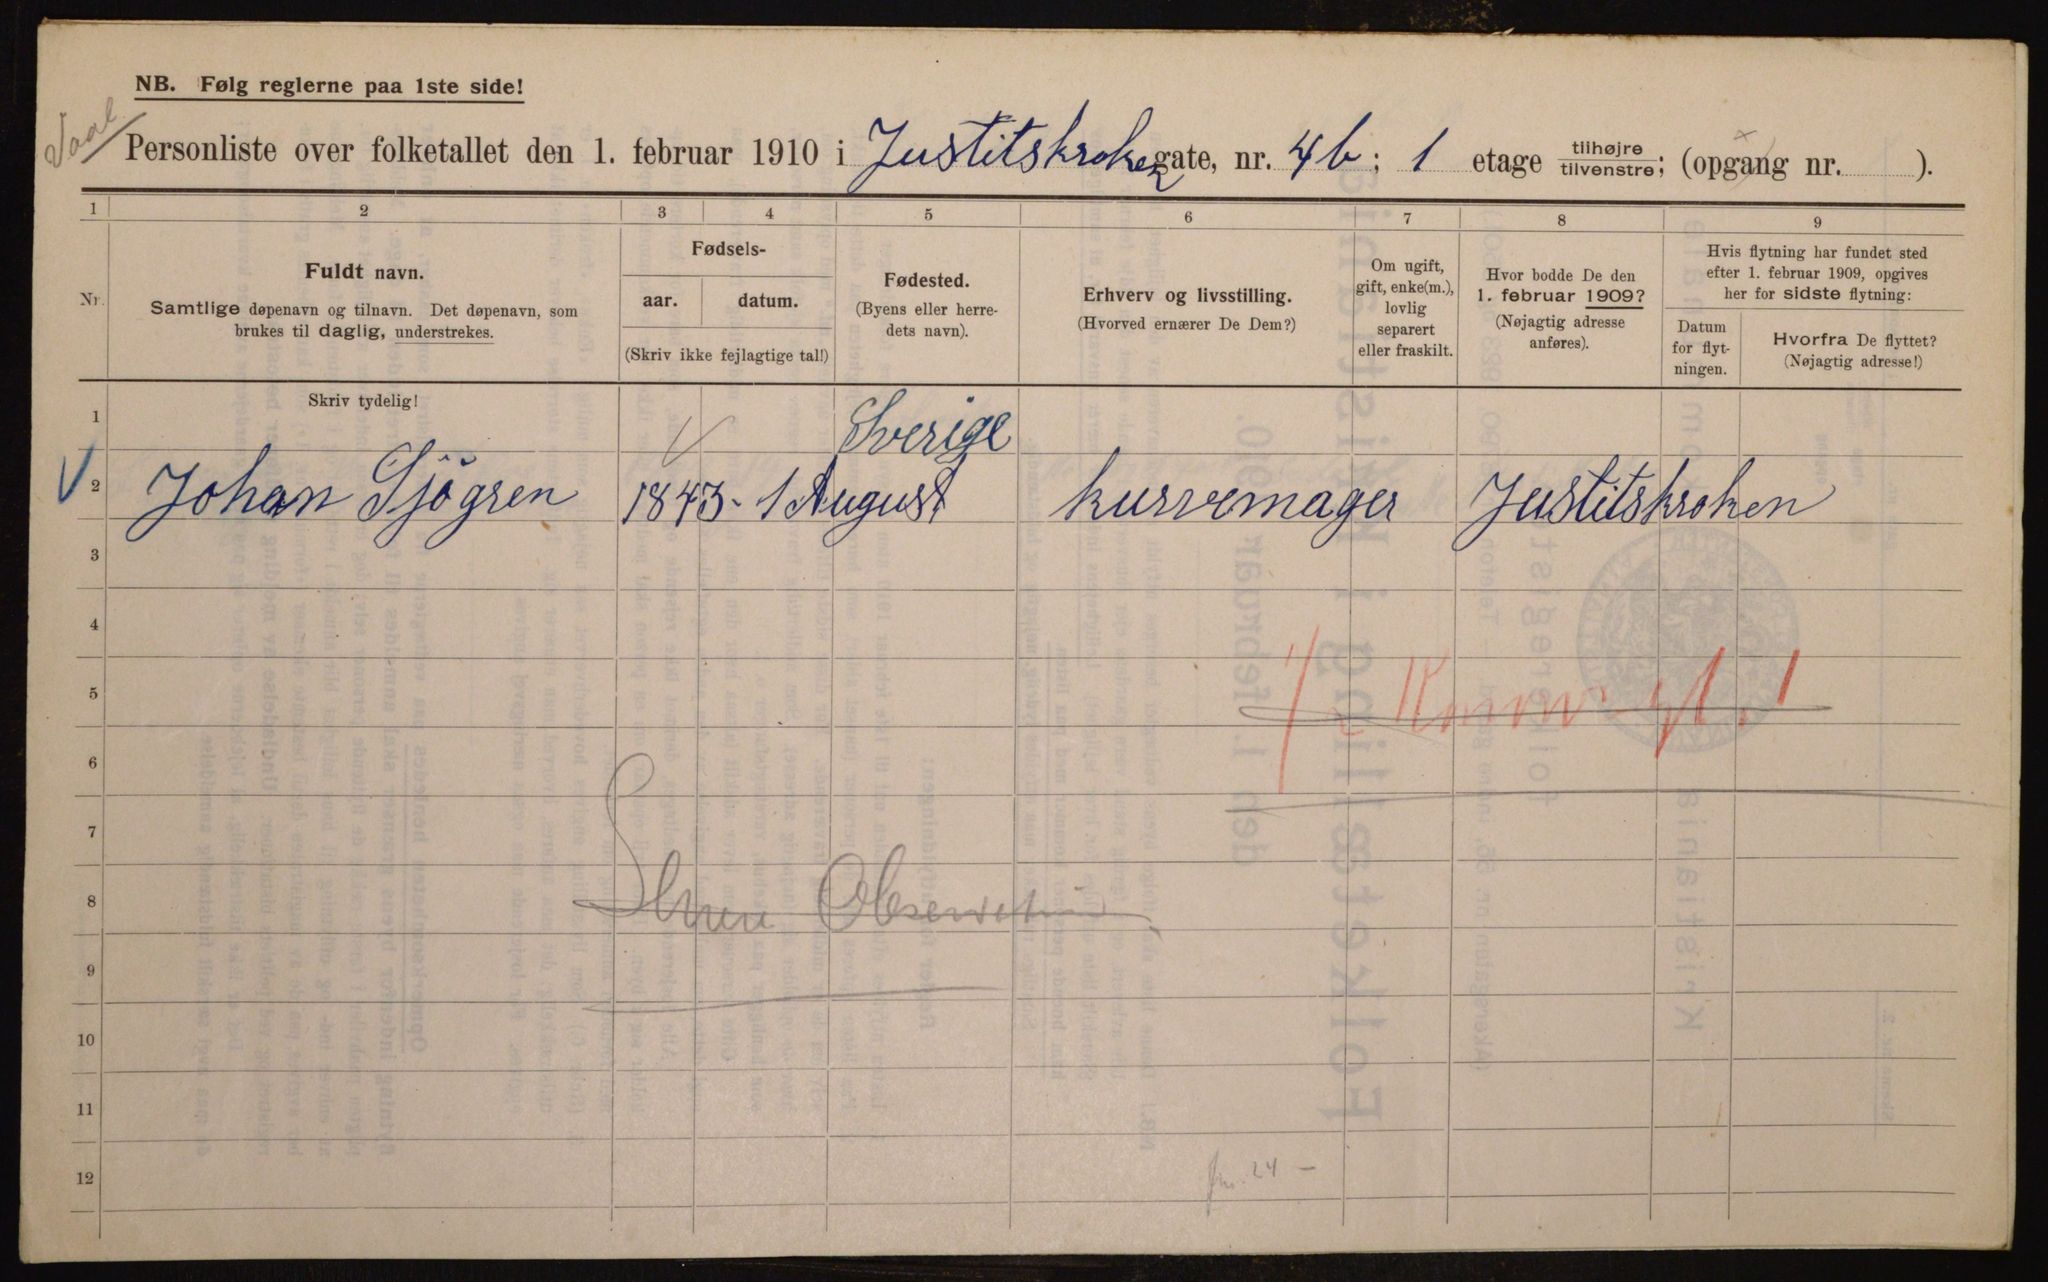 NB. Følg reglerne paa 1ste side!
Personliste over folketallet den 1. februar 1910 i Justitskroken gate, nr. 4b; 1 etage tilhøjre/tilvenstre; (opgang nr. ).
1 2 3 4 5 6 7 8 9
Nr.
Fuldt navn.
Samtlige døpenavn og tilnavn. Det døpenavn, som
brukes til daglig, understrekes.
Fødsels-
aar. datum.
(Skriv ikke fejlagtige tal!)
Fødested.
(Byens eller herre-
dets navn).
Erhverv og livsstilling.
(Hvorved ernærer De Dem?)
Om ugift,
gift, enke(m.),
lovlig
separert
eller fraskilt.
Hvor bodde De den
1. februar 1909?
(Nøjagtig adresse
anføres).
Hvis flytning har fundet sted
efter 1. februar 1909, opgives
her for sidste flytning:
Datum
for flyt-
ningen.
Hvorfra De flyttet?
(Nøjagtig adresse!)
Skriv tydelig!
1 Sverige
2 Johan Sjögren 1843 - 1 August kurvemager Justitskroken
3
4
5
6
7
8
9
10
11
12